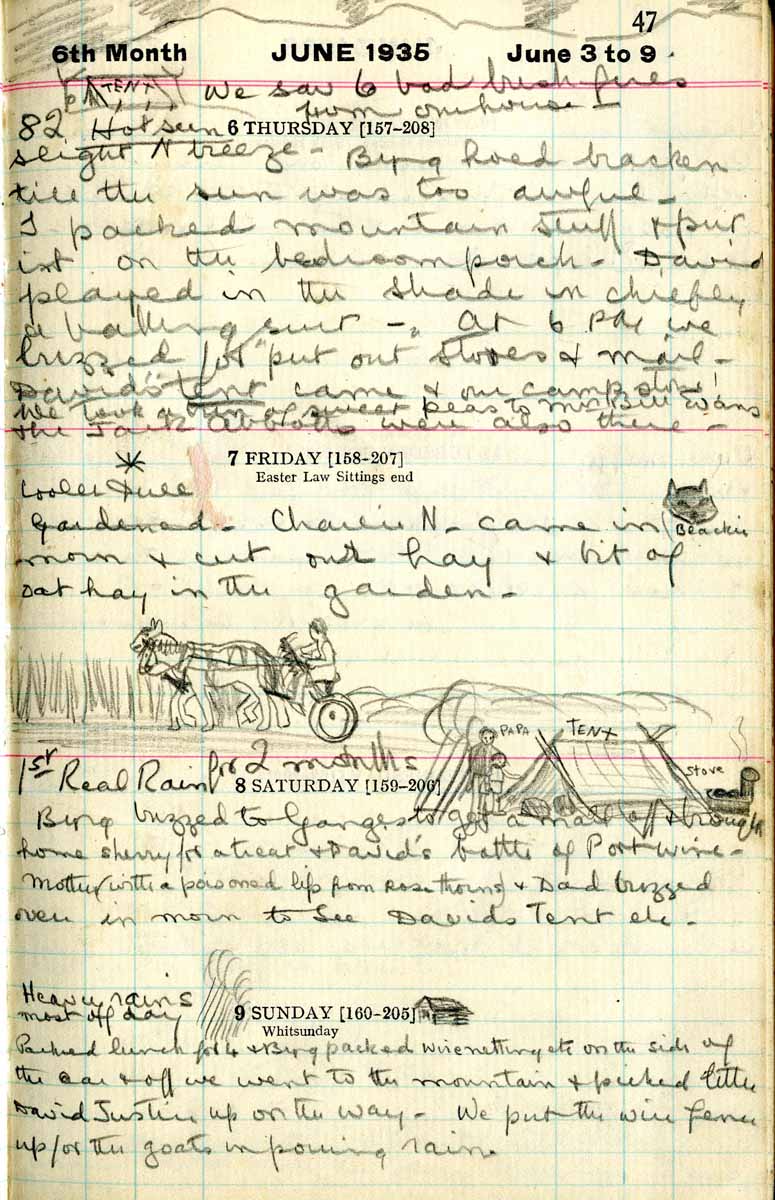 47
6th Month JUNE 1935 June 3 to 9
TENT We saw 6 bad bush fires
from our house -
82 Hot sun 6 THURSDAY [157-208]
slight N breeze - Byrg hoed bracken
till the sun was too awful -
I packed mountain stuff & put
it on the bedroom porch - David
played in the shade in chiefly
a bathing suit - At 6 PM we
buzzed for "put out stores & mail -
David's tent came & our camp stove!
We took a bun of sweet peas to Mrs Bill Evans
the Jack Abbotts were also there -
7 FRIDAY [158-207]
Easter Law Sittings end
Cooler & dull
Gardened - Charlie N - came in Blackie
morn & cut our hay & bit of
oat hay in the garden -
PAPA TENT
stove
1st Real Rain for 2 months
8 SATURDAY [159-206]
Byrg buzzed to Ganges to get a mail off & brought
home sherry for a treat & David's bottle of Port wine -
Mother (with a poisoned lip from rose thorns) & Dad buzzed
over in morn to see Davids Tent etc -
Heavy rains
most of day
9 SUNDAY [160-205]
Whitsunday
Packed lunch for 4 & Byrg packed wire netting etc on the side of
the car & off we went to the mountain & picked little
David Justin up on the way - We put the wire fence
up for the goats in pouring rain